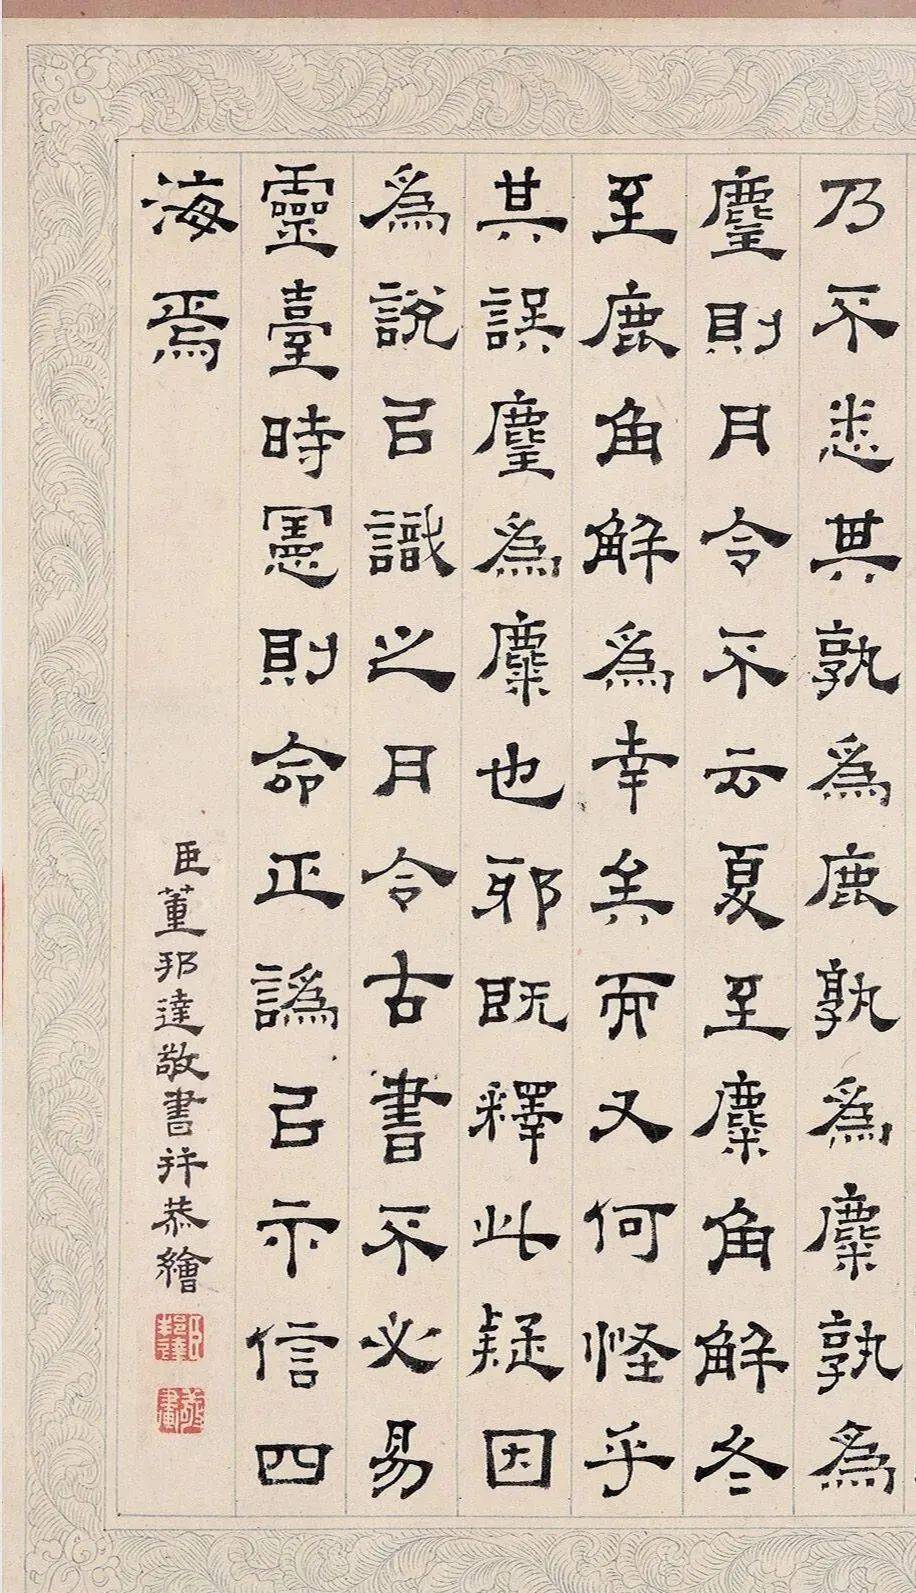 乃不悉其孰爲鹿孰爲麋孰爲
麈則月令不云夏至麋角解冬
至鹿角解爲幸矣而又何怪乎
其誤麈爲麋也邪既釋此疑因
爲說㠯識之月令古書不必易
靈臺時憲則命正譌㠯示信四
海焉
臣董邦達敬書并恭繪
臣邦達